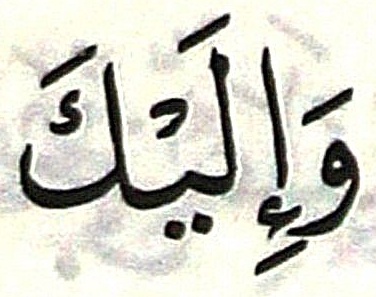 وَإِلَيْكَ